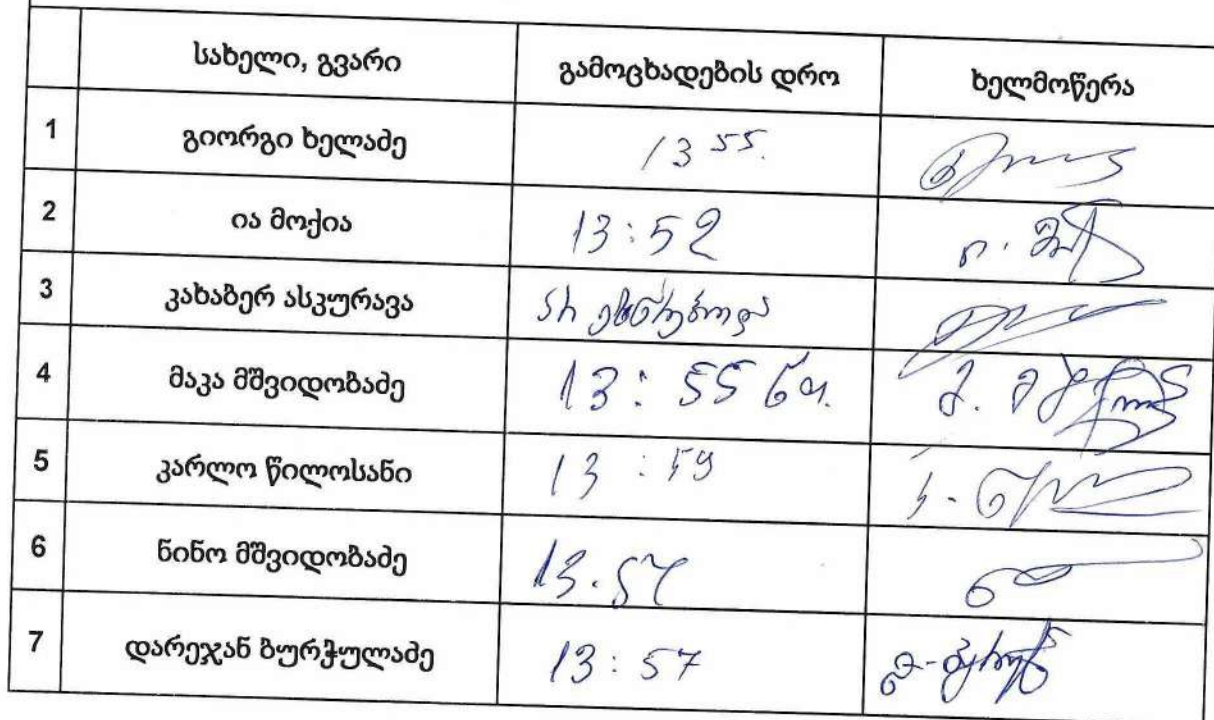 სახელი, გვარი გამოცხადების დრო ხელმოწერა
1 გიორგი ხელაძე 13 55.
2 ია მოქია 13:52
3 კახაბერ ასკურავა არ ესწრებოდა
4 მაკა მშვიდობაძე 13:55 წთ.
5 კარლო წილოსანი 13:59
6 ნინო მშვიდობაძე 13.57
7 დარეჯან ბურჭულაძე 13:57